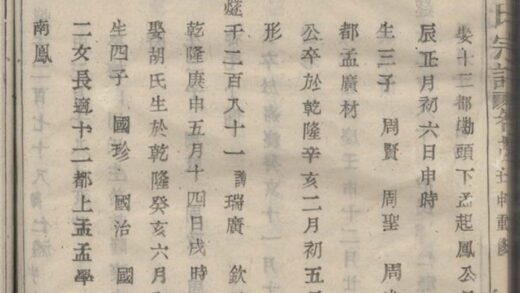 氏宗譜 卷 壬申重修
娶十三都墈頭下孟起鳳公
辰正月初六日申時
生三子 周賢 周聖 周
都孟廣材
公卒於乾隆辛亥二月初五
形
燧千二百八十一 諱瑞廣 欽
乾隆庚申五月十四日戌時
娶胡氏生於乾隆癸亥六月
生四子 國珍 國治 國
二女長適十二都上孟孟學
南鳳